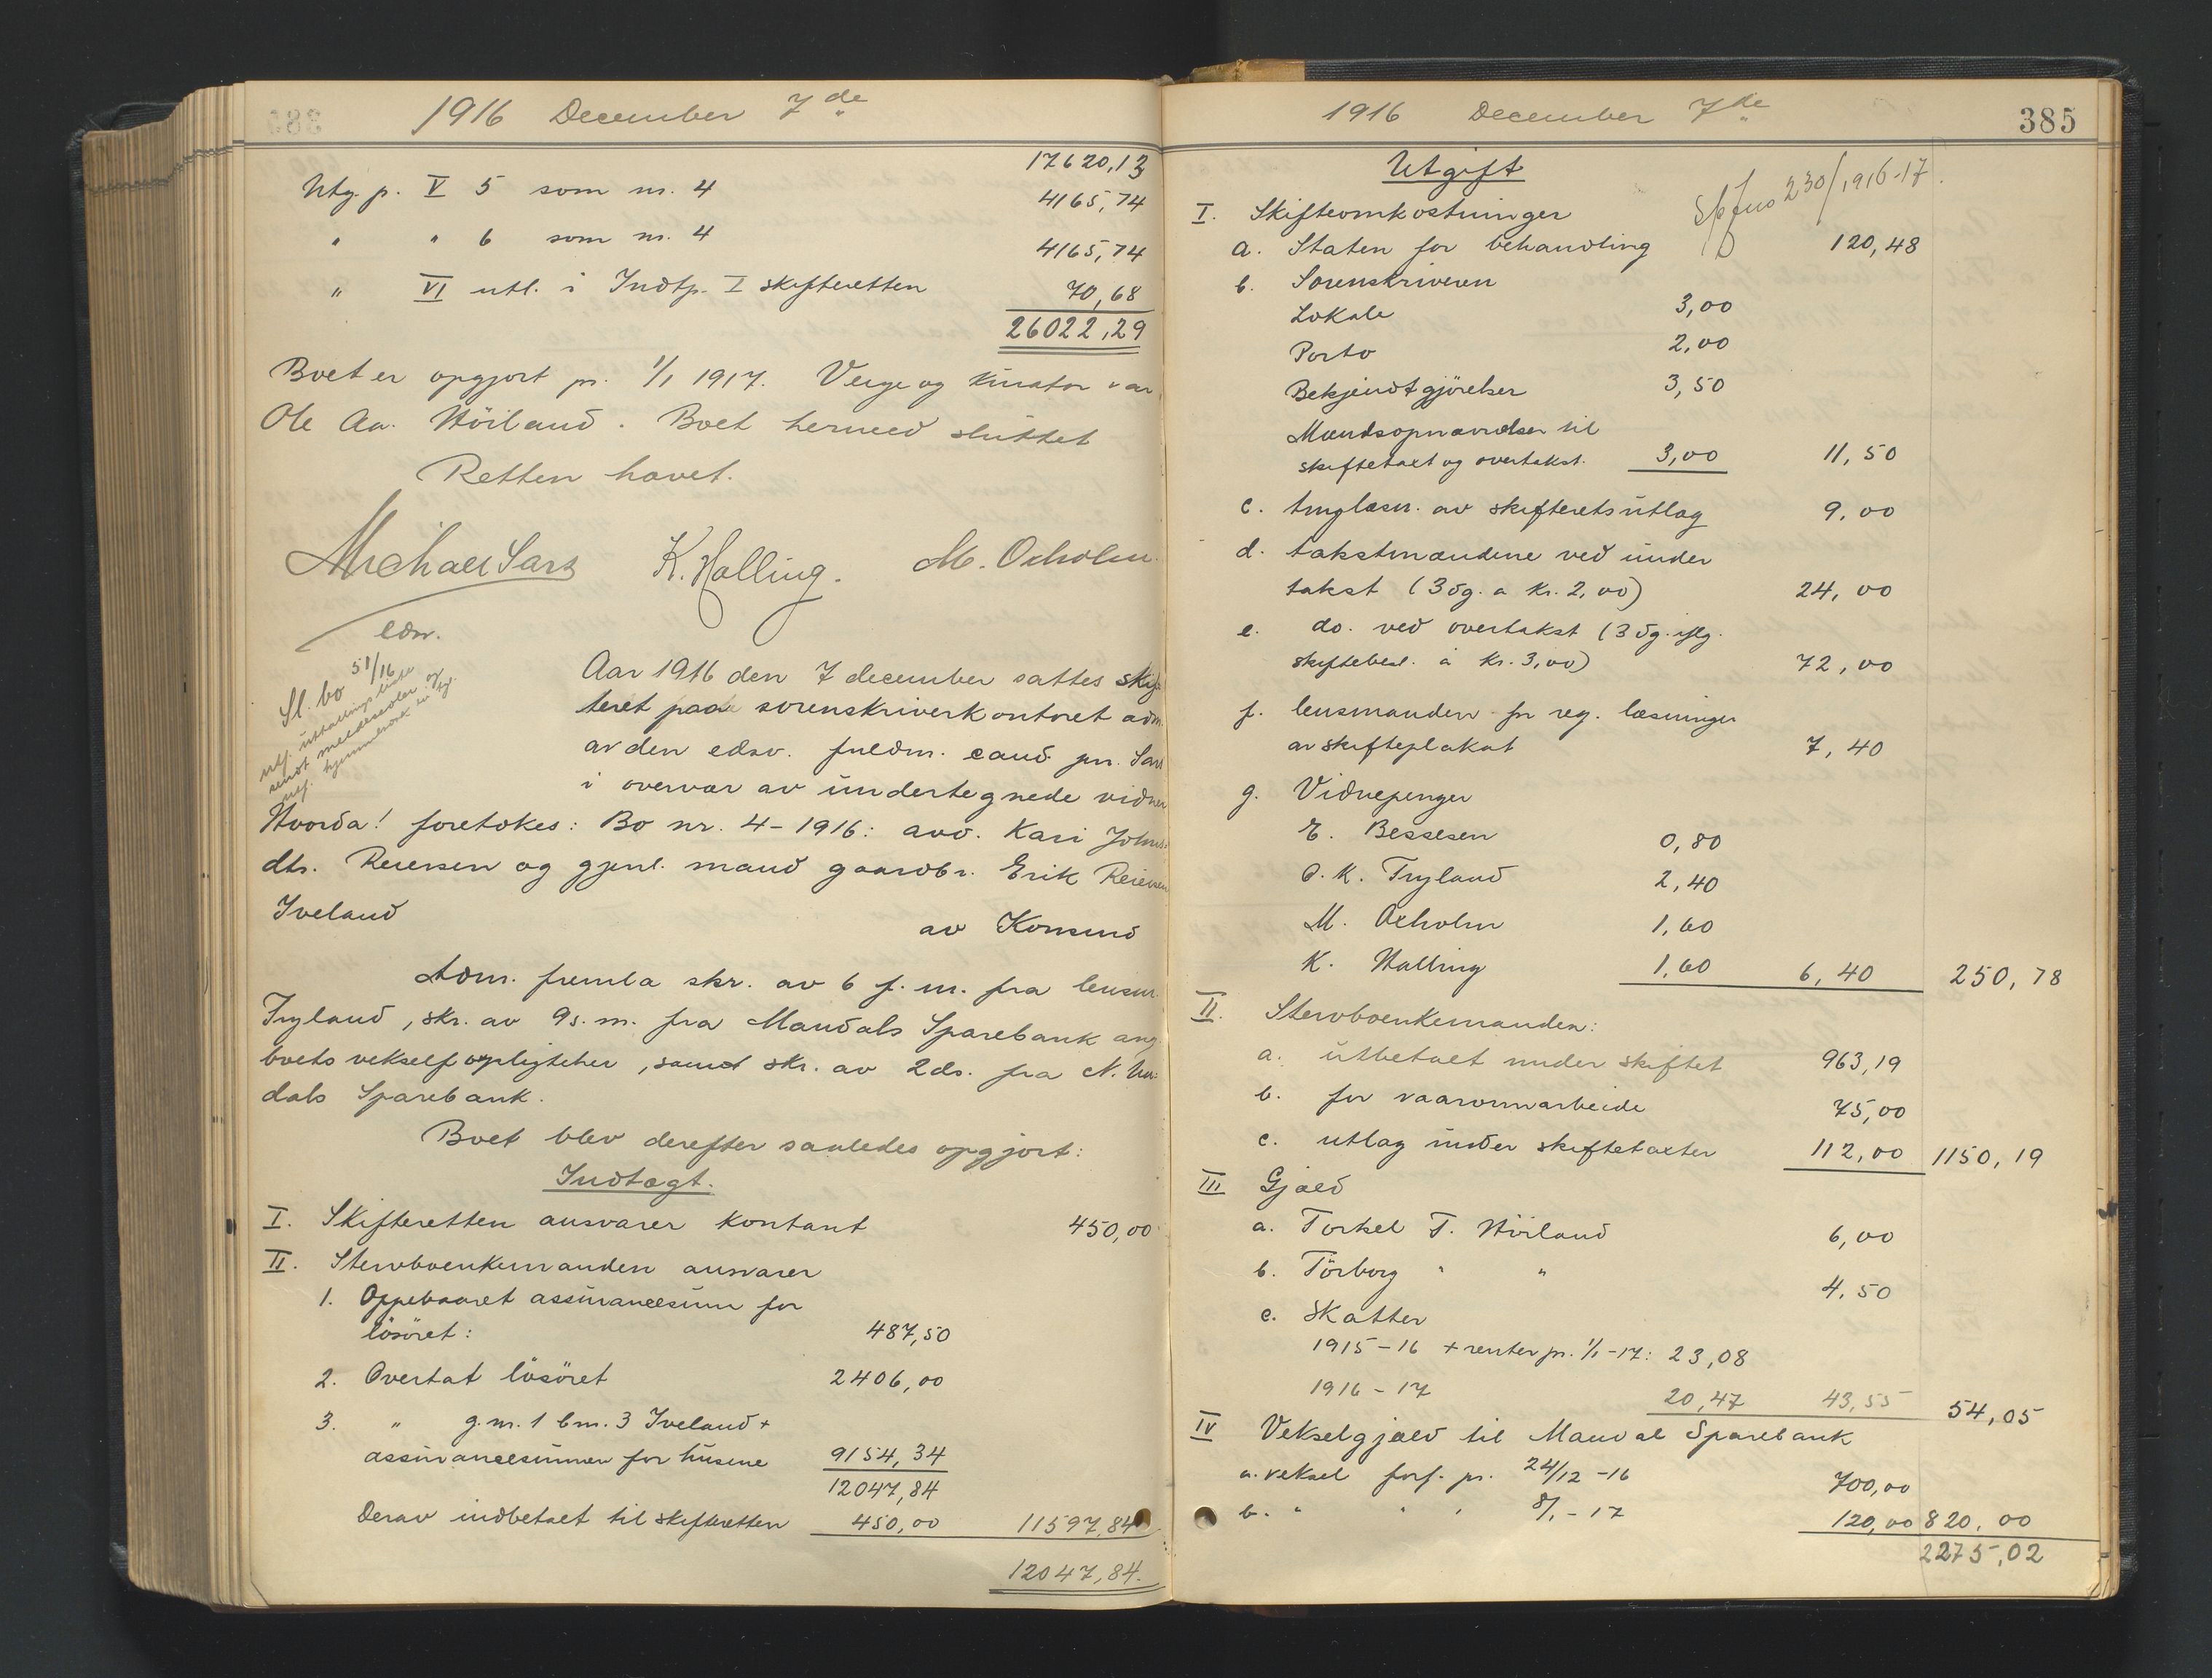 1916 December 7de
17620,13
Utg. p. V 5 som nr. 4 4165,74
" " 6 som nr. 4 4165,74
" VI utl. i Indtp. I skifteretten 70,68
26022,29
Boet er opgjort pr. 1/1 1917. Verge og kurator var
Ole Aa. Höiland. Boet hermed sluttet
Retten hævet.
Michael Sars K. Halling. M. Oxholm
edsv.
Sl. bo 51/16
Aar 1916 den 7 december sattes skif
teret paa sorenskriverkontoret adm.
av den edsv. fuldm. cand. jur. Sars
i overvær av undertegnede vidner
Hvorda! foretokes: Bo nr. 4-1916: avd. Kari Johns
dtr. Reiersen og gjenl. mand gaardbr. Erik Reiersen
Iveland
av Konsmo
Adm. fremla skr. av 6 f. m. fra lensm.
Tryland, skr. av 9 s. m. fra Mandals Sparebank ang.
boets vekselforpligtelser, samt skr. av 2 ds. fra N. Un-
dals Sparebank.
Boet blev derefter saaledes opgjort:
Indtægt.
I. Skifteretten ansvarer kontant 450,00
II. Stervboenkemanden ansvarer
1. Oppebaaret assurancesum for
lösöret: 487,50
2. Overtat lösöret 2406,00
3. " g.nr. 1 bnr. 3 Iveland +
assurancesummen for husene 9154,34
12047,84
Derav indbetalt til skifteretten 450,00 11597,84
12047,84.
1916 December 7de
385
Utgift
230/1916-17.
I. Skifteomkostninger
a. Staten for behandling 120,48
b. Sorenskriveren
Lokale 3,00
Porto 2,00
Bekjendtgjörelser 3,50
Mandsopnævnelser til
skiftetaxt og overtakst. 3,00 11,50
c. tinglæsn. av skifteretsutlæg 9,00
d. takstmændene ved under
takst (3 dg. a kr. 2,00) 24,00
e. do. ved overtakst (3 dg. iflg.
skiftebesl. à kr. 3,00) 72,00
f. lensmanden for reg. læsninger
av skifteplakat 7,40
g. Vidnepenger
E. Bessesen 0,80
O. K. Tryland 2,40
M. Oxholm 1,60
K. Halling 1,60 6,40 250,78
II. Stervboenkemanden:
a. utbetalt under skiftet 963,19
b. for vaaronnarbeide 75,00
c. utlæg under skiftetaxter 112,00 1150,19
III Gjæld
a. Torkel T. Höiland 6,00
b. Törborg " " 4,50
c. Skatter
1915-16 + renter pr. 1/1-17: 23,08
1916-17 20,47 43,55 54,05
IV Vekselgjæld til Mandal Sparebank
a. veksel forf. pr. 24/12-16 700,00
b. " " " 8/1-17 120,00 820,00
2275,02